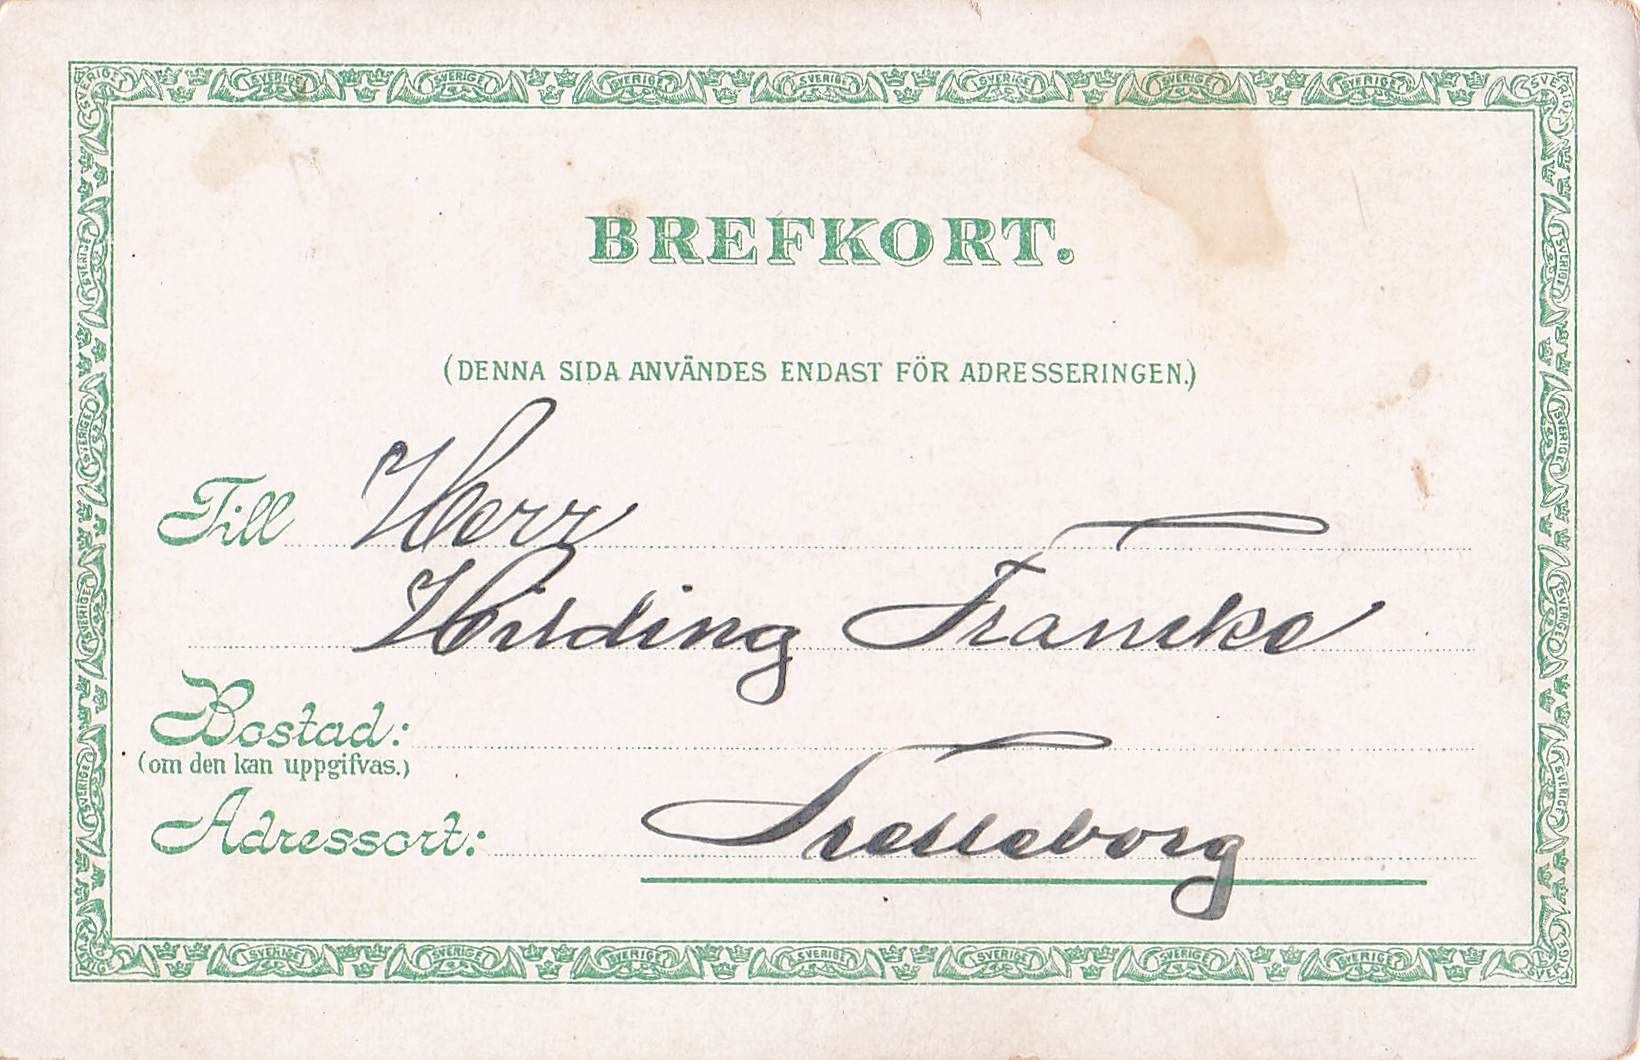 BREFKORT.
(DENNA SIDA ANVÄNDES ENDAST FÖR ADRESSERINGEN.)
Till Herr
Hilding Francke
Bostad:
(om den kan uppgifvas.)
Adressort: Trelleborg
SVERIGE